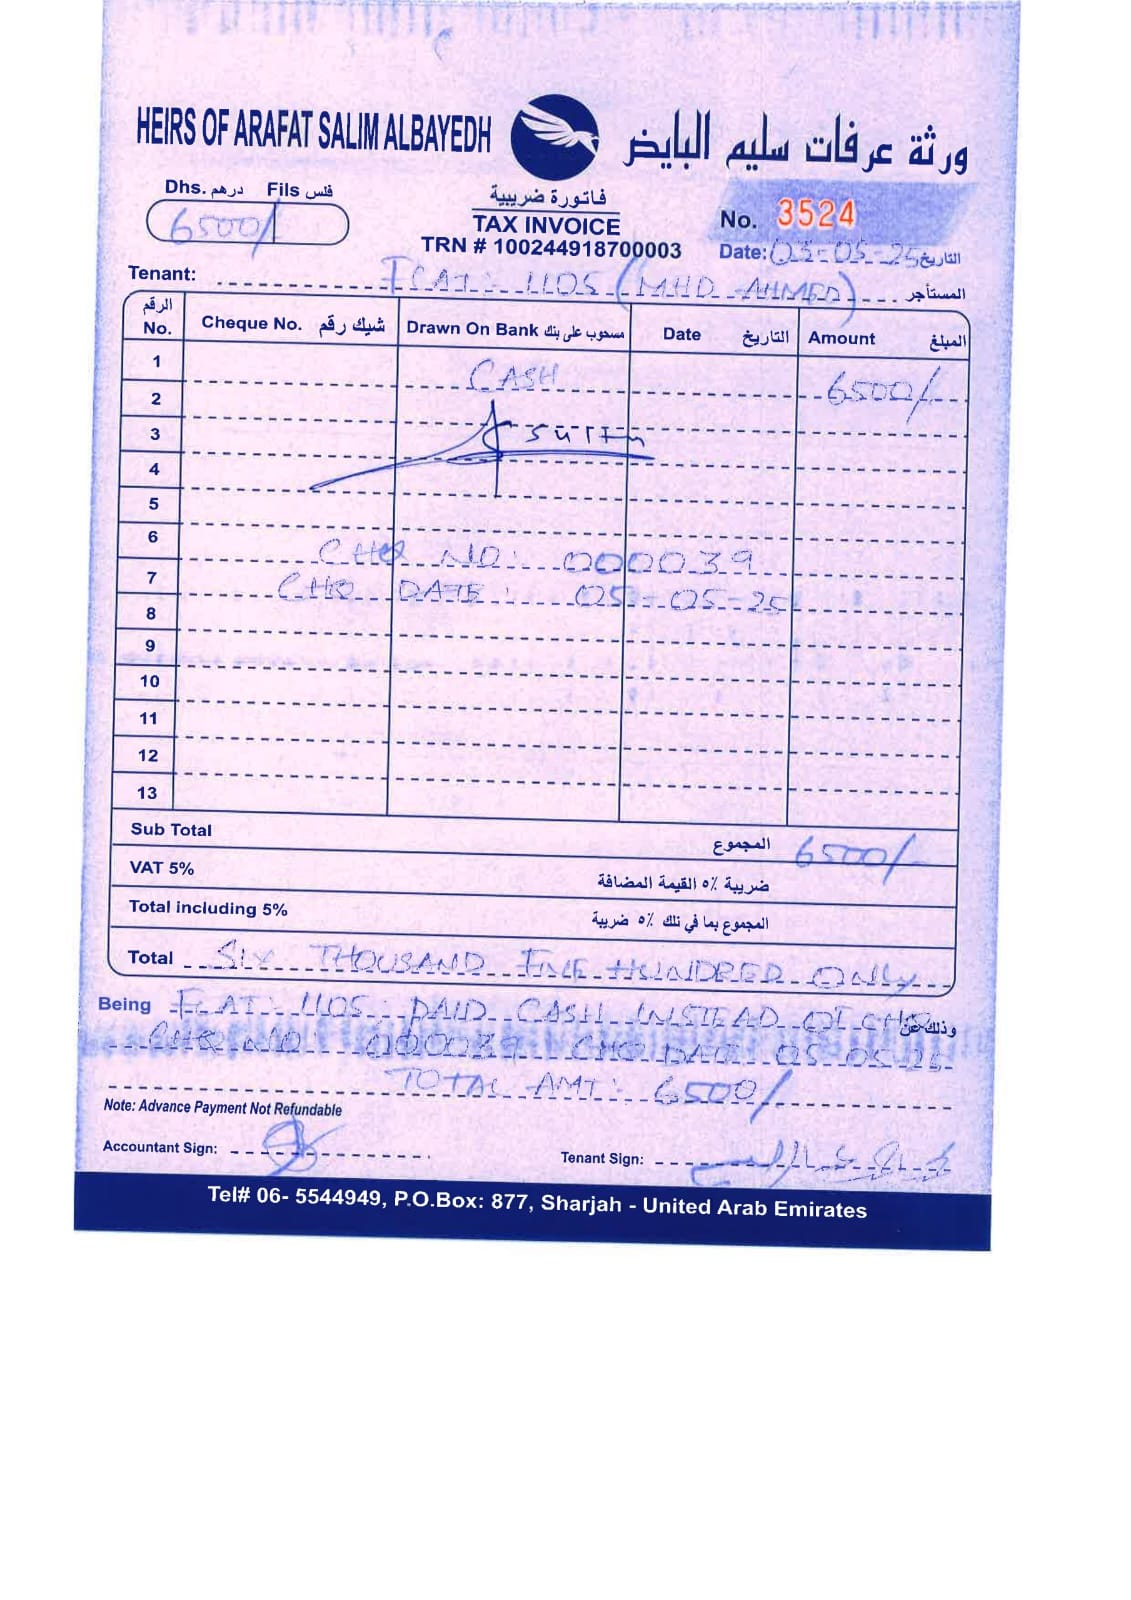 HEIRS OF ARAFAT SALIM ALBAYEDH
ورثة عرفات سليم البايض
Dhs. درهم Fils فلس
6500/
فاتورة ضريبية
TAX INVOICE
TRN # 100244918700003
No. 3524
Date: 03-05-25 التاريخ
Tenant: FLAT: 1105 (MHD AHMED) المستأجر
الرقم No. Cheque No. شيك رقم Drawn On Bank مسحوب على بنك Date التاريخ Amount المبلغ
1 CASH 6500/-
2
3
4
5
6 CHQ NO: 000039
7 CHQ DATE: 05-05-25
8
9
10
11
12
13
Sub Total المجموع 6500/-
VAT 5% ضريبة ٥٪ القيمة المضافة
Total including 5% المجموع بما في تلك ٥٪ ضريبة
Total SIX THOUSAND FIVE HUNDRED ONLY
Being FLAT: 1105 PAID CASH INSTEAD OF CHQ وذلك عن
CHQ NO 000039 CHQ DAT 05-05-25
TOTAL AMT: 6500/
Note: Advance Payment Not Refundable
Accountant Sign:
Tenant Sign:
Tel# 06- 5544949, P.O.Box: 877, Sharjah - United Arab Emirates